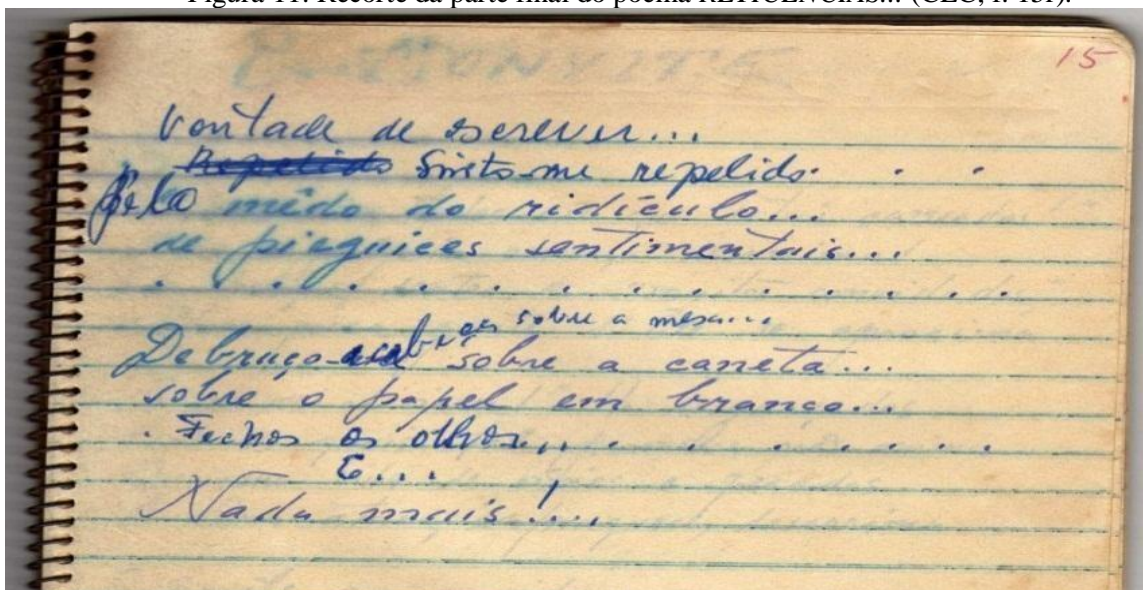 Figura 11: Recorte da parte final do poema RETICÊNCIAS... (CEC, f. 15r).
15
Vontade de escrever...
Repetido Sinto-me repelido . . .
pelo mêdo do ridículo...
de pieguices sentimentais...
. . . . . . . . . . . . . .
sobre a mesa...
Debruço sobre a caneta...
sobre o papel em branco...
. Fechos os olhos... . . . . . . .
E...
Nada mais!...